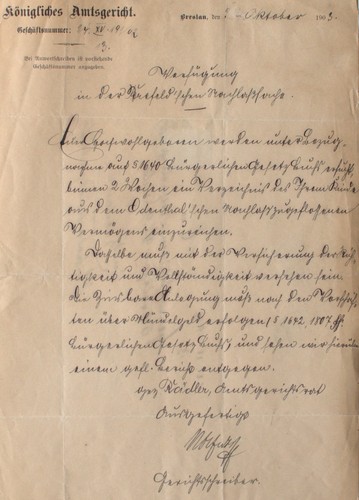 Königliches Amtsgericht.
Breslau, den Oktober 1903.
Geschäftsnummer:
13.
Bei Antwortschreiben ist vorstehende
Geschäftsnummer anzugeben.
Verfügung
in der 'schen Nachlaßsache.
Hochwohlgeboren werden unter Bezug-
nahme auf § 1640 Bürgerlichen Gesetzbuchs ersucht
binnen 2 Wochen ein Verzeichnis des Ihrem Kinde
aus dem Odenthal'schen Nachlaß zugeflossenen
Vermögens einzureichen.
Dasselbe muß mit der Versicherung der Rich-
tigkeit und Vollständigkeit versehen sein.
Die Anlegung muß nach den Vorschrif-
ten über Mündelgeld erfolgen § 1642, 1807 ff
Bürgerlichen Gesetzbuchs und sehen wir hierüber
einem gefl. Bericht entgegen.
gez Amtsgerichtsrat
Ausgefertigt
Gerichtsschreiber.